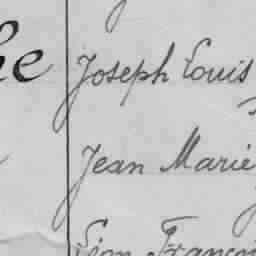 he Joseph Louis
Jean Marie
Léon François